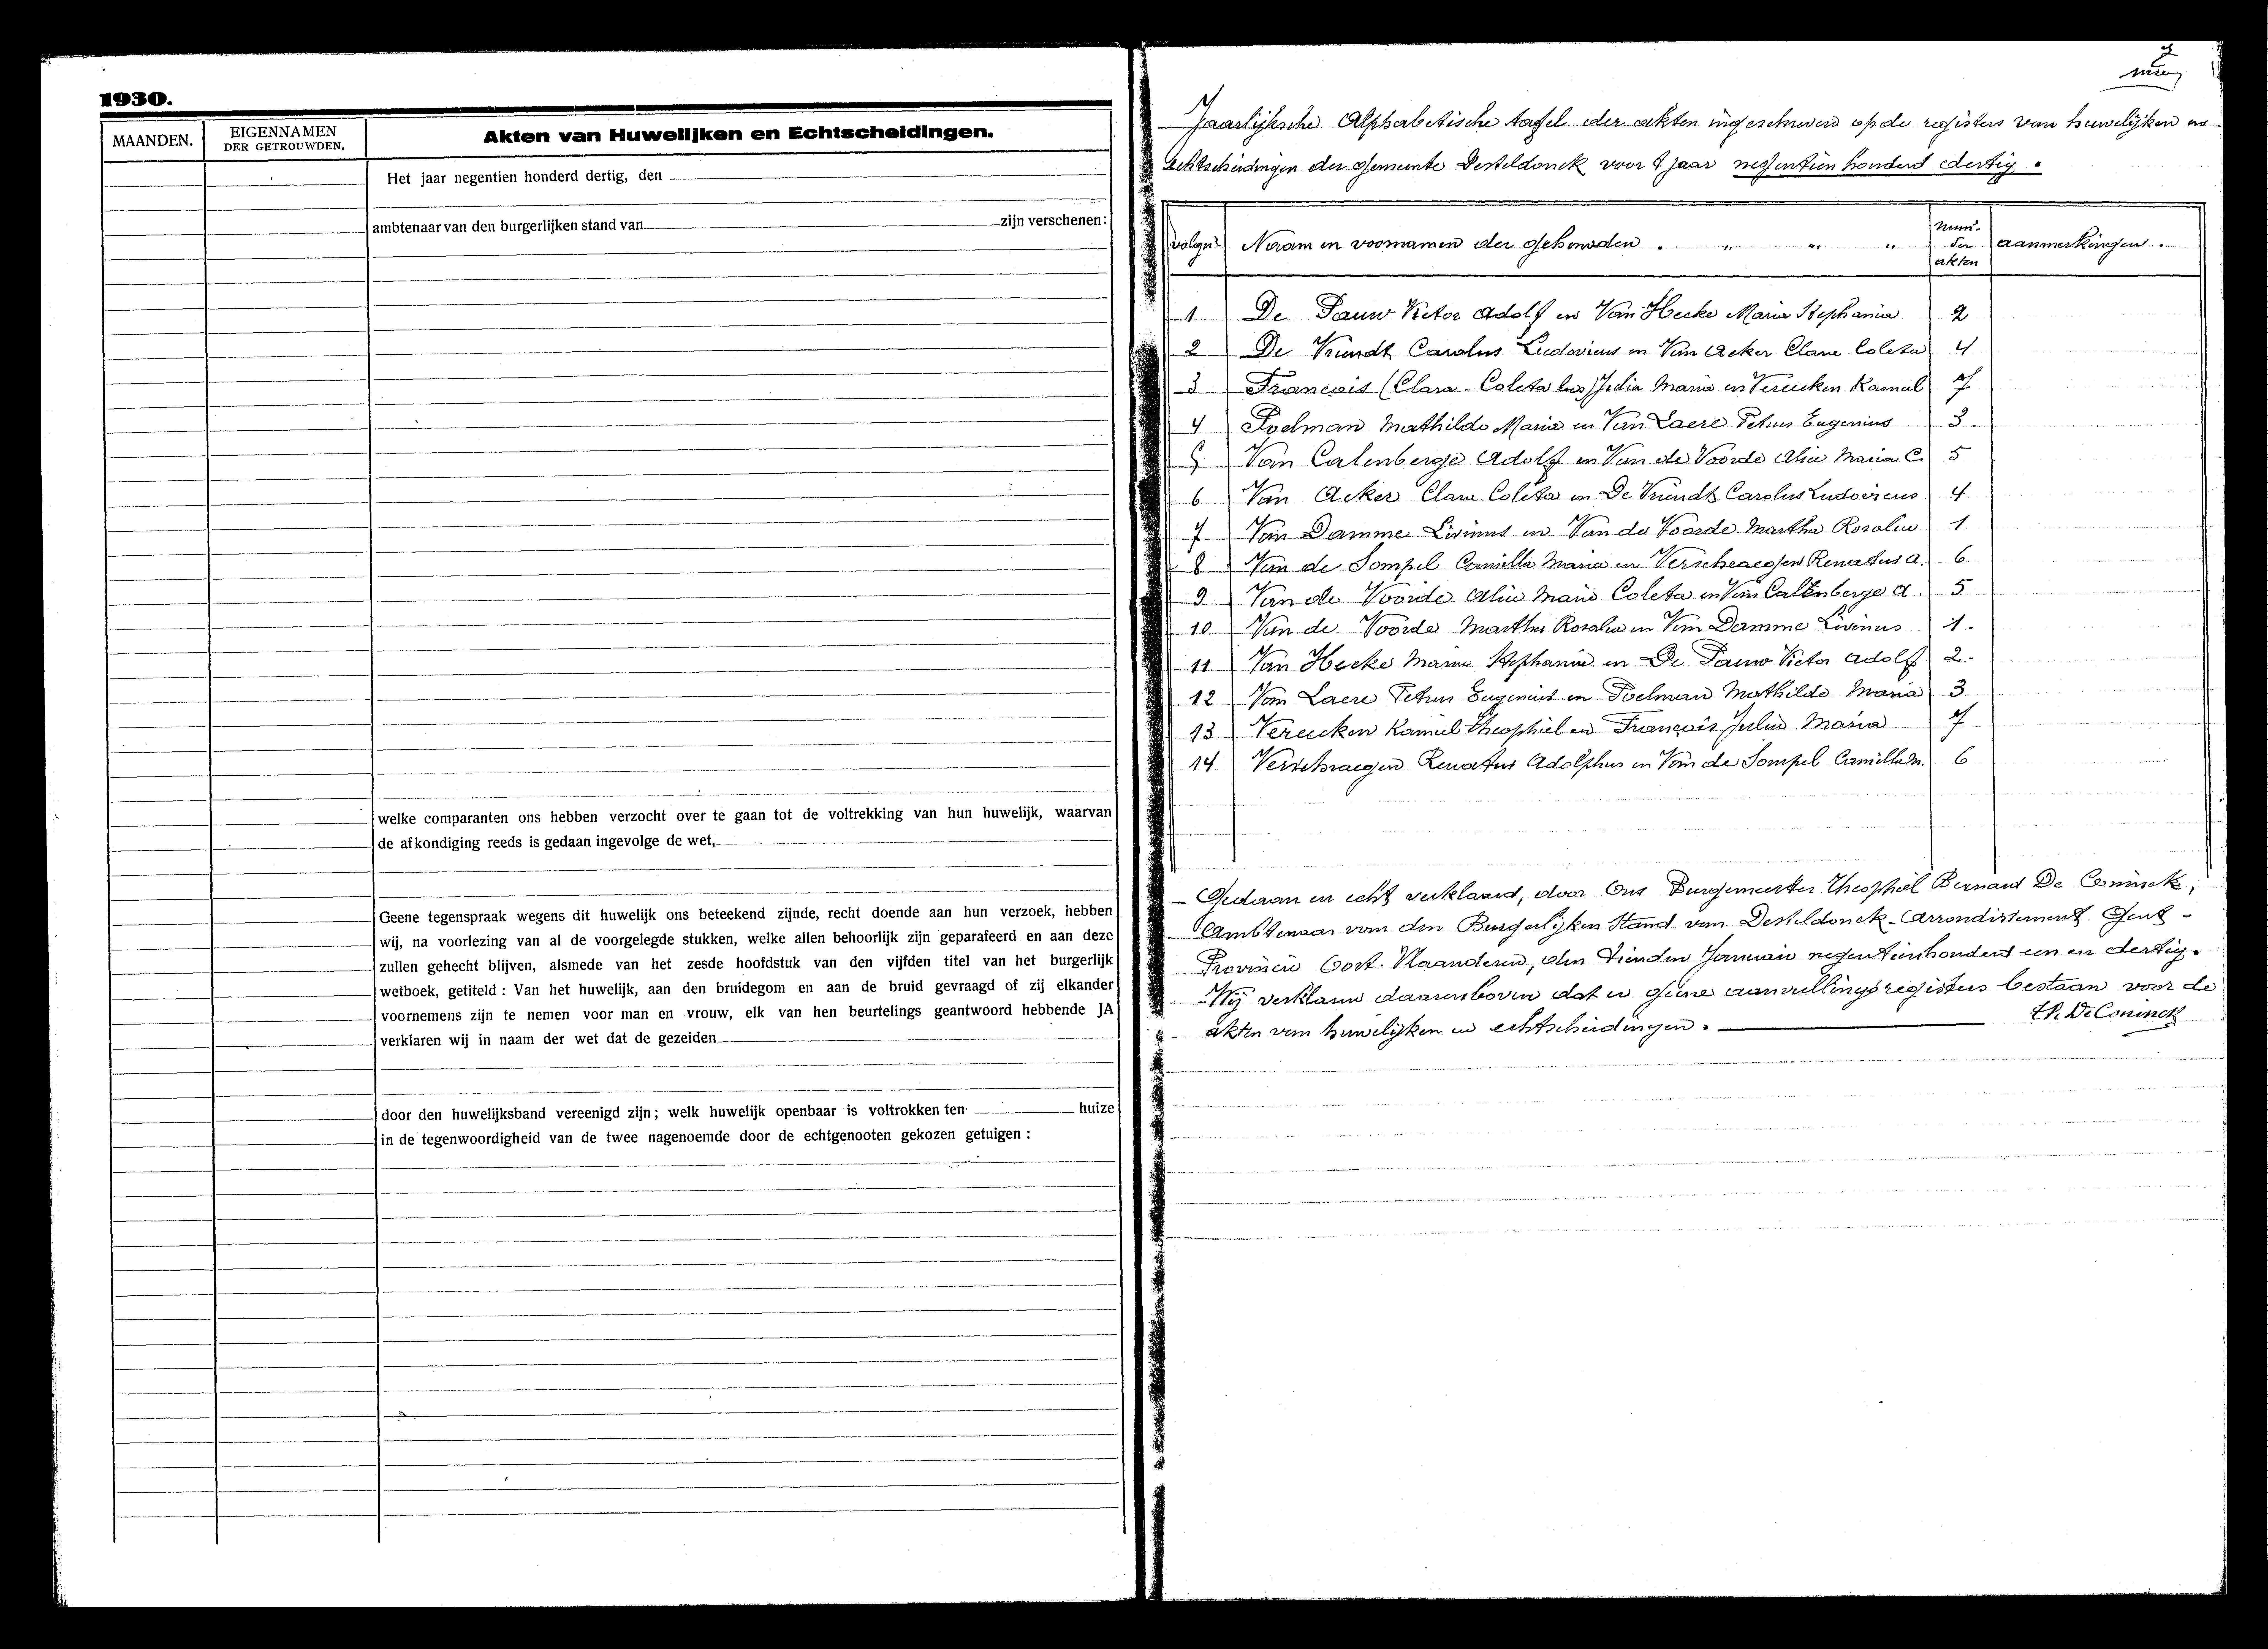 1930.
MAANDEN.
EIGENNAMEN
DER GETROUWDEN.
Akten van Huwelijken en Echtscheidingen.
Het jaar negentien honderd dertig, den
ambtenaar van den burgerlijken stand van zijn verschenen:
welke comparanten ons hebben verzocht over te gaan tot de voltrekking van hun huwelijk, waarvan
de afkondiging reeds is gedaan ingevolge de wet,
Geene tegenspraak wegens dit huwelijk ons beteekend zijnde, recht doende aan hun verzoek, hebben
wij, na voorlezing van al de voorgelegde stukken, welke allen behoorlijk zijn geparafeerd en aan deze
zullen gehecht blijven, alsmede van het zesde hoofdstuk van den vijfden titel van het burgerlijk
wetboek, getiteld : Van het huwelijk, aan den bruidegom en aan de bruid gevraagd of zij elkander
voornemens zijn te nemen voor man en vrouw, elk van hen beurtelings geantwoord hebbende JA
verklaren wij in naam der wet dat de gezeiden
door den huwelijksband vereenigd zijn; welk huwelijk openbaar is voltrokken ten huize
in de tegenwoordigheid van de twee nagenoemde door de echtgenooten gekozen getuigen :
Jaarlijksche Alphabetische tafel der akten ingeschreven op de registers van huwelijken en
Echtscheidingen der Gemeente Desteldonck voor 't jaar negentien honderd dertig.
volgnr Naam en voornamen der gehuwden . " " " num. der akten aanmerkingen .
1 De Pauw Victor Adolf en Van Hecke Maria Stephania 2
2 De Vriendt Carolus Ludovicus en Van Acker Clara Coleta 4
3 François (Clara-Coleta Julia Maria en Vereecken Kamiel 7
4 Poelman Mathilde Maria en Van Laere Petrus Eugenius 3.
5 Van Calenberge Adolf en Van de Voorde Alice Maria C. 5
6 Van Acker Clara Coleta en De Vriendt Carolus Ludovicus 4
7 Van Damme Livinus en Van de Voorde Martha Rosalia 1
8 Van de Sompel Camilla Maria en Verschraegen Renatus A. 6
9 Van de Voorde Alice Maria Coleta en Van Calenberge A. 5
10 Van de Voorde Martha Rosalia en Van Damme Livinus 1.
11 Van Hecke Maria Stephania en De Pauw Victor Adolf 2.
12 Van Laere Petrus Eugenius en Poelman Mathilde Maria 3
13 Vereecken Kamiel Theophiel en François Julia Maria 7
14 Verschraegen Renatus Adolphus en Van de Sompel Camilla M. 6
- Gedaan en echt verklaard, door Ons Burgemeester Theophiel Bernard De Coninck,
Ambtenaar van den Burgerlijken Stand van Desteldonck - Arrondissement Gent -
Provincie Oost-Vlaanderen, den tienden Januari negentienhonderd een en dertig.
- Wij verklaren daarenboven dat er geene aanvullingsregisters bestaan voor de
akten van huwelijken en echtscheidingen.
Th. De Coninck